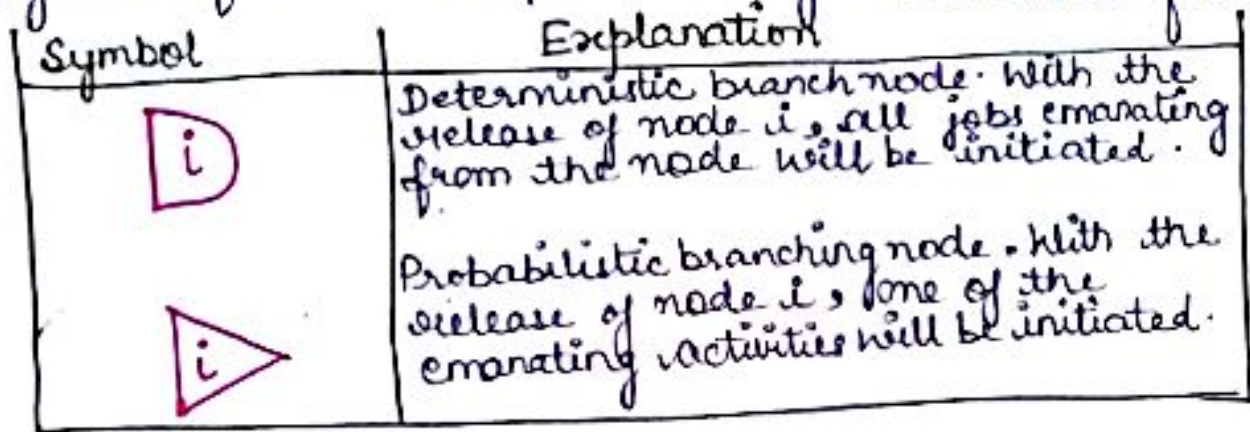 Symbol Explanation
i
Deterministic branch node. With the
release of node i, all jobs emanating
from the node will be initiated.
i
Probabilistic branching node. With the
release of node i, one of the
emanating activities will be initiated.